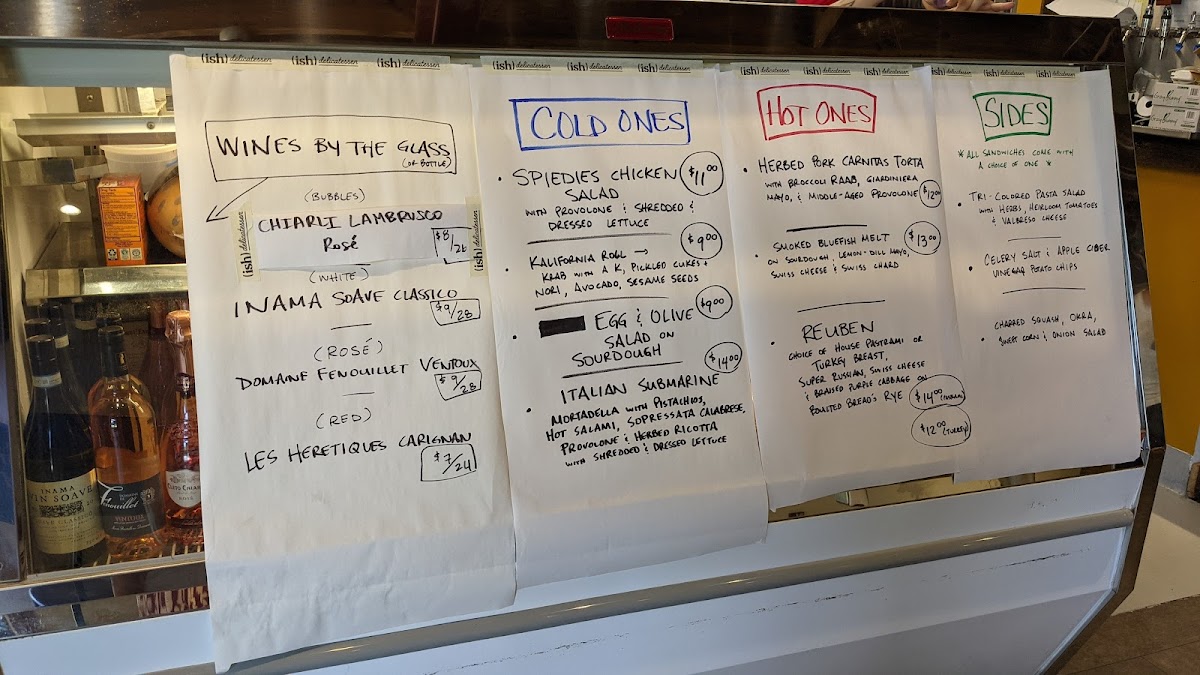 (ish) delicatessen (ish) delicatessen (ish) delicatessen
WINES BY THE GLASS
(OR BOTTLE)
(BUBBLES)
CHIARLI LAMBRUSCO
Rosé
$8/26
(ish) delicatessen
(ish) delicatessen
(WHITE)
INAMA SOAVE CLASSICO
$9/28
(ROSÉ)
DOMAINE FENOUILLET VENTOUX
$9/28
(RED)
LES HERETIQUES CARIGNAN
$7/24
(ish) delicatessen (ish) delicatessen (ish) delicatessen
COLD ONES
SPIEDIES CHICKEN $11.00
SALAD
WITH PROVOLONE & SHREDDED &
DRESSED LETTUCE
KALIFORNIA ROLL → $9.00
KRAB WITH A K, PICKLED CUKES +
NORI, AVOCADO, SESAME SEEDS
EGG & OLIVE $9.00
SALAD ON
SOURDOUGH
ITALIAN SUBMARINE $14.00
MORTADELLA WITH PISTACHIOS,
HOT SALAMI, SOPRESSATA CALABRESE,
PROVOLONE & HERBED RICOTTA
WITH SHREDDED & DRESSED LETTUCE
(ish) delicatessen (ish) delicatessen (ish) delicatessen
HOT ONES
HERBED PORK CARNITAS TORTA
WITH BROCCOLI RAAB, GIARDINIERA
MAYO, & MIDDLE-AGED PROVOLONE $12.00
SMOKED BLUEFISH MELT $13.00
ON SOURDOUGH, LEMON-DILL MAYO,
SWISS CHEESE & SWISS CHARD
REUBEN
CHOICE OF HOUSE PASTRAMI OR
TURKEY BREAST,
SUPER RUSSIAN, SWISS CHEESE
& BRAISED PURPLE CABBAGE ON
ROASTED BREAD'S RYE $14.00
$12.00 (TURKEY)
delicatessen (ish) delicatessen (ish) delicatessen
SIDES
* ALL SANDWICHES COME WITH
A CHOICE OF ONE *
TRI-COLORED PASTA SALAD
WITH HERBS, HEIRLOOM TOMATOES
& VALBRESO CHEESE
CELERY SALT & APPLE CIDER
VINEGAR POTATO CHIPS
CHARRED SQUASH, OKRA,
SWEET CORN & ONION SALAD
INAMA
VIN SOAVE
Fenouillet
VENTOUX